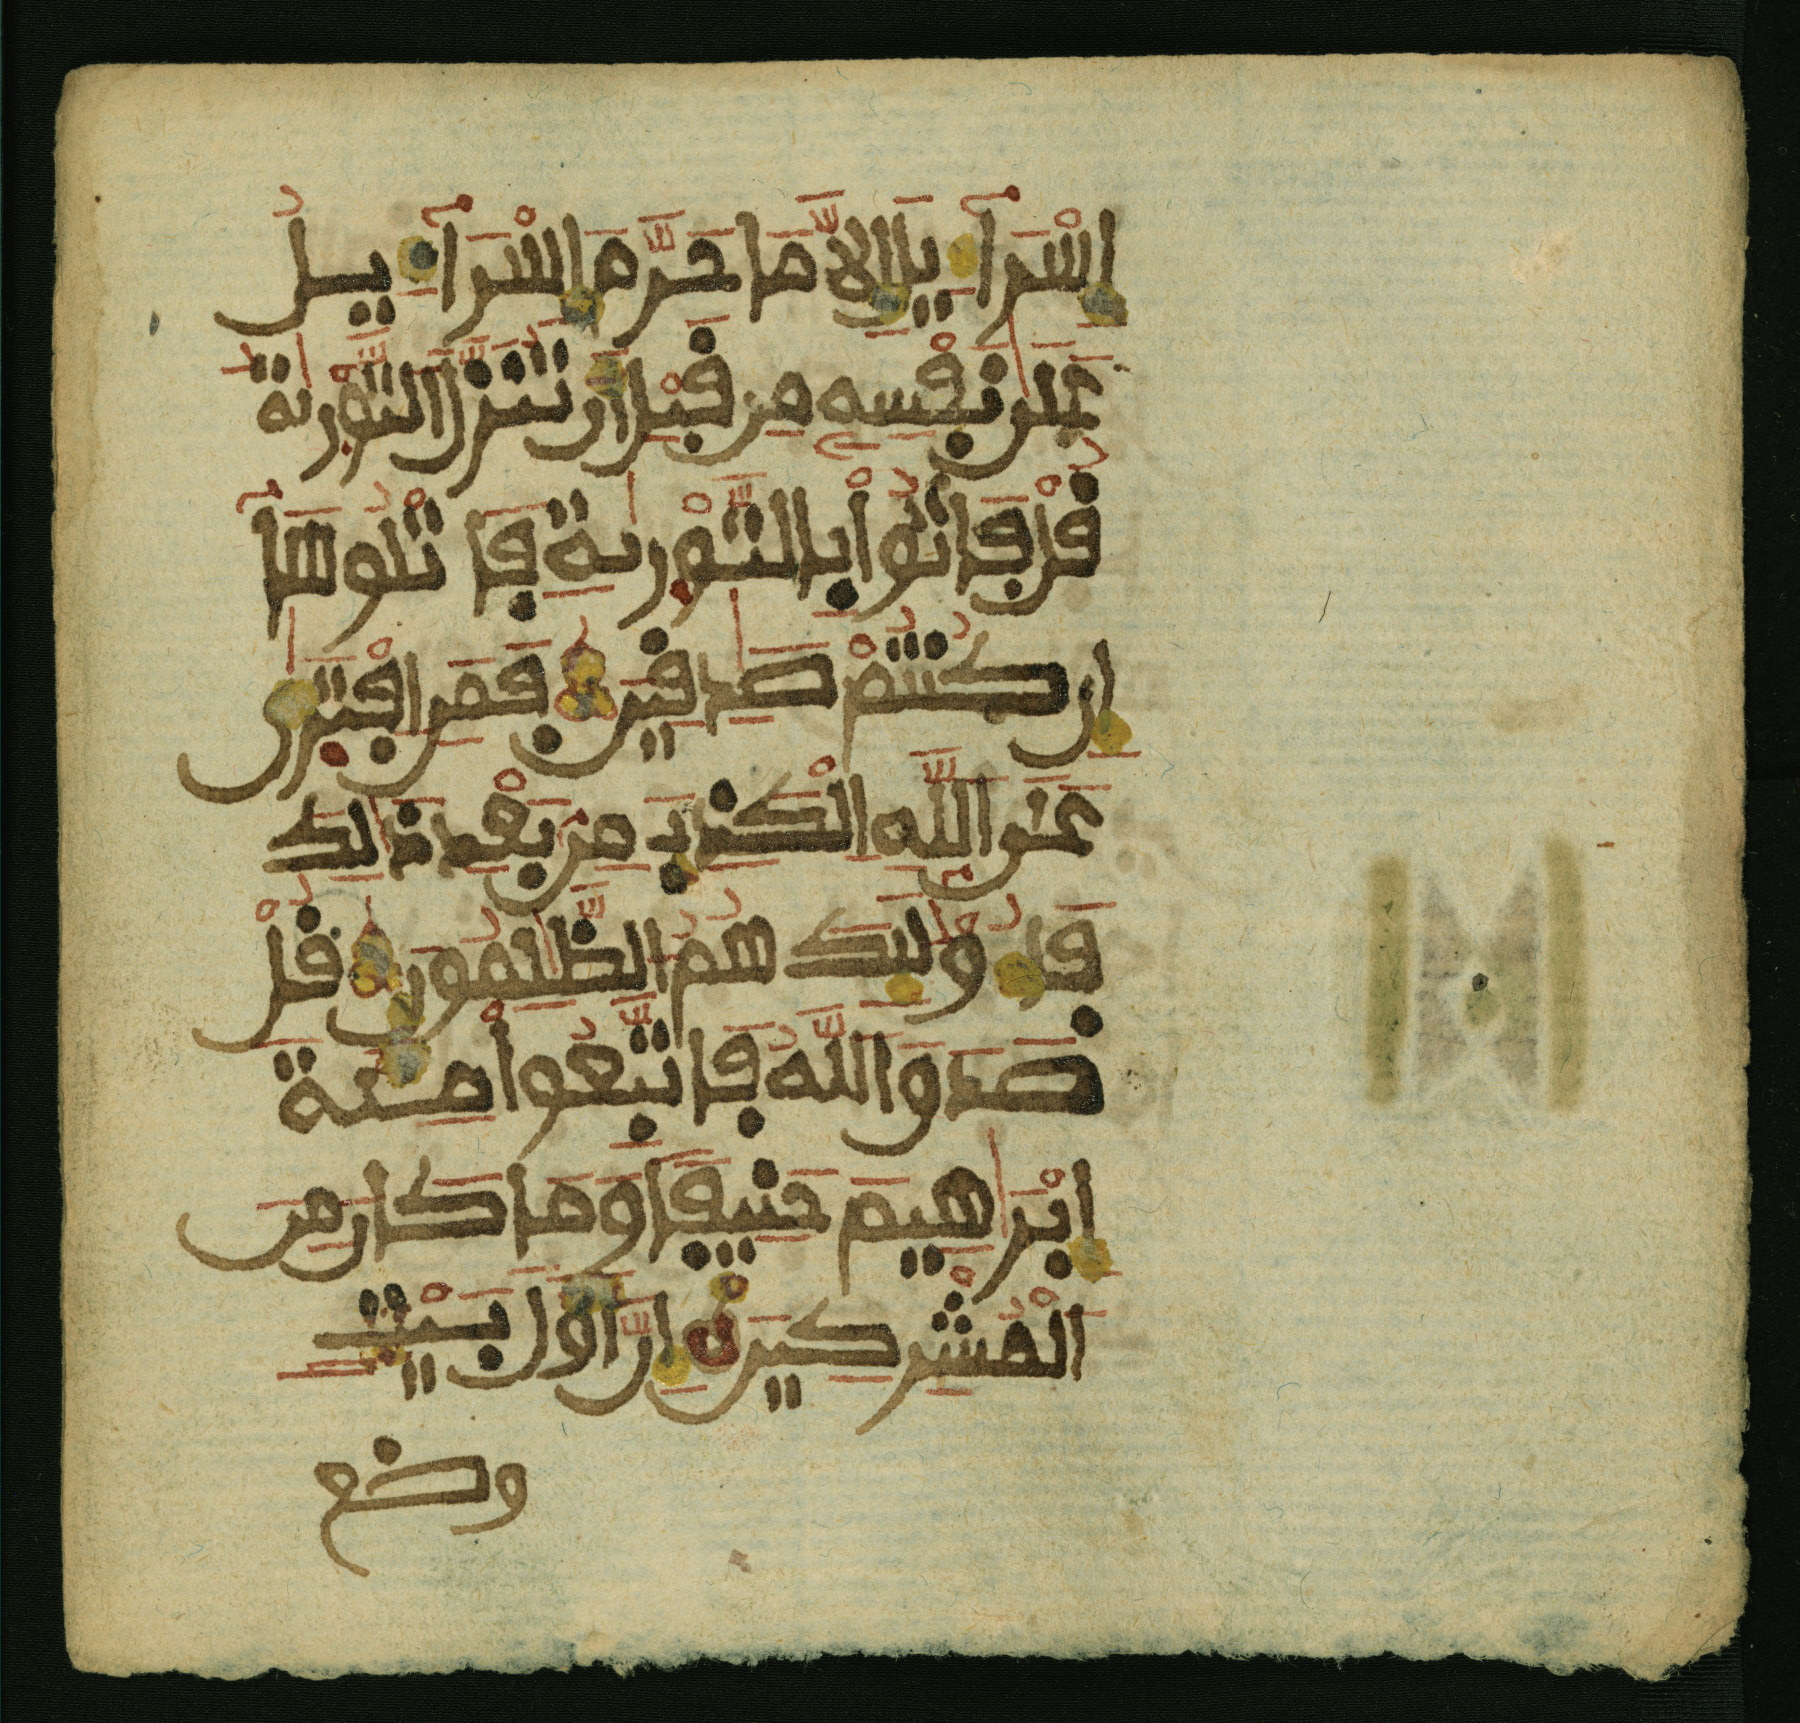 إِسْرَآءِيلَ إِلَّا مَا حَرَّمَ إِسْرَآءِيلُ
عَلَىٰ نَفْسِهِ مِن قَبْلِ أَن تُنَزَّلَ ٱلتَّوْرَىٰةُ
قُلْ فَاتُواْ بِالتَّوْرَىٰةِ فَاتْلُوهَآ
إِن كُنتُمْ صَٰدِقِينَ فَمَنِ اِفْتَرَىٰ
عَلَى اَللَّهِ اِلْكَذِبَ مِن بَعْدِ ذَٰلِكَ
فَأُوْلَٰئِكَ هُمُ اُلظَّٰلِمُونَ قُلْ
صَدَقَ اَللَّهُ فَاتَّبِعُواْ مِلَّةَ
إِبْرَٰهِيمَ حَنِيفاً وَمَا كَانَ مِنَ
اَلْمُشْرِكِينَ إِنَّ أَوَّلَ بَيْتٍ
وضع